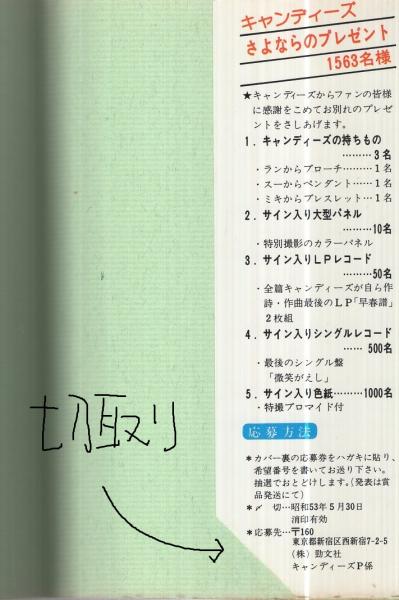 キャンディーズ
さよならのプレゼント
1563名様
★キャンディーズからファンの皆様
に感謝をこめてお別れのプレゼ
ントをさしあげます。
1．キャンディーズの持ちもの
………3名
・ランからブローチ………1名
・スーからペンダント……1名
・ミキからブレスレット…1名
2．サイン入り大型パネル
………10名
・特別撮影のカラーパネル
3．サイン入りLPレコード
………50名
・全篇キャンディーズが自ら作
詩・作曲最後のLP「早春譜」
2枚組
4．サイン入りシングルレコード
……500名
・最後のシングル盤
「微笑がえし」
5．サイン入り色紙………1000名
・特撮ブロマイド付
応募方法
＊カバー裏の応募券をハガキに貼り、
希望番号を書いてお送り下さい。
抽選でおとどけします。(発表は賞
品発送にて)
＊〆 切…昭和53年5月30日
消印有効
＊応募先…〒160
東京都新宿区西新宿7-2-5
(株) 勁文社
キャンディーズP係
切取り